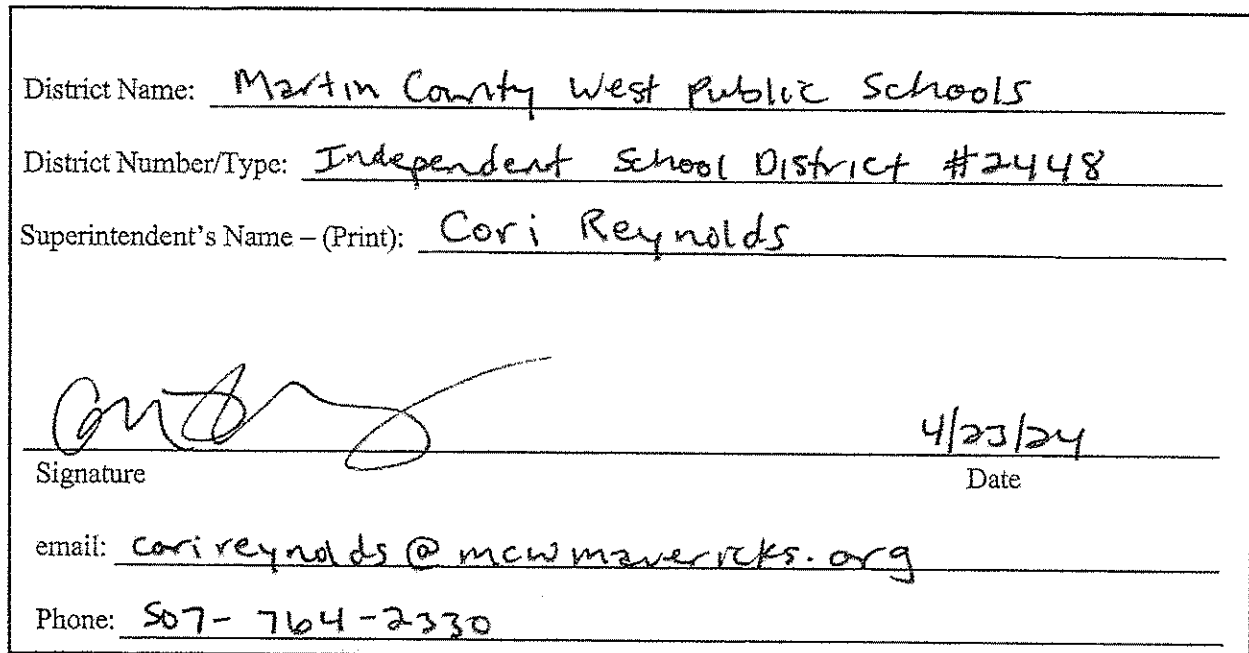 District Name: Martin County West Public Schools
District Number/Type: Independent School District #2448
Superintendent's Name – (Print): Cori Reynolds
4/23/24
Signature Date
email: corireynolds@mcwmavericks.org
Phone: 507-764-2330